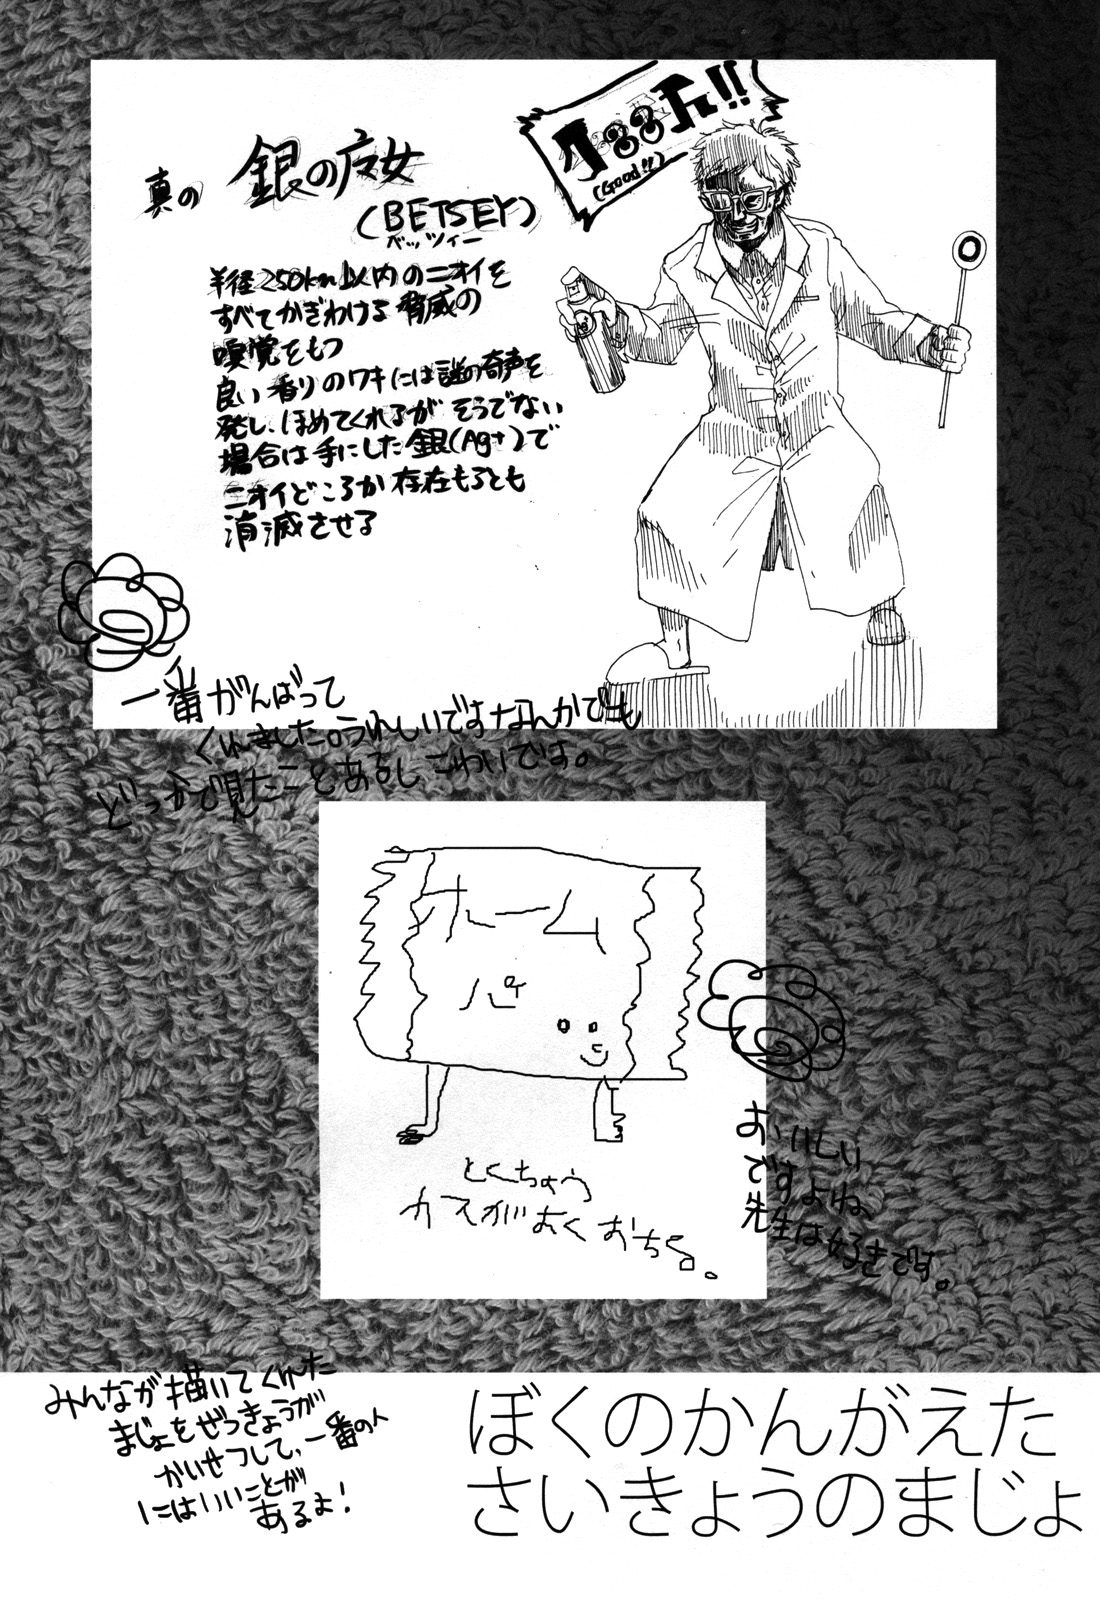 グッッド!!
(Good!!)
真の 銀の魔女
(BETSEY)
ベッツィー
半径250km以内のニオイを
すべてかぎわける脅威の
嗅覚をもつ
良い香りのワキには謎の奇声を
発し、ほめてくれるがそうでない
場合は手にした銀(Ag+)で
ニオイどころか存在もろとも
消滅させる
一番がんばって
くれました。うれしいですなんかでも
どっかで見たことあるしこわいです。
ホーム
パイ
とくちょう
カスがおくおちる。
おいしい
ですよね、
先生は好きです。
みんなが描いてくれた
まじょをぜっきょうが
かいせつして、一番の人
にはいいことが
あるよ!
ぼくのかんがえた
さいきょうのまじょ